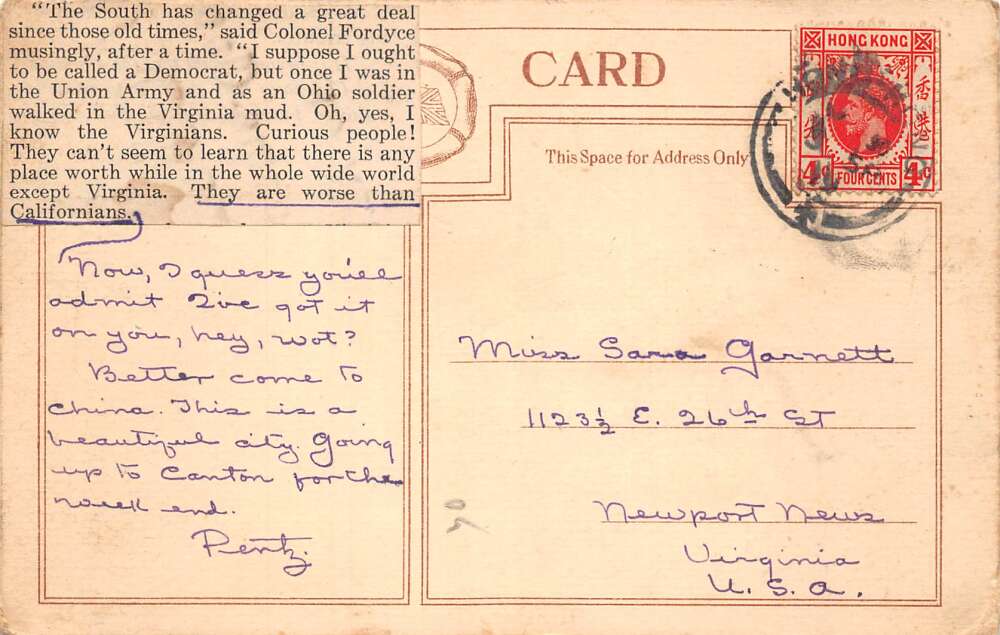 "The South has changed a great deal
since those old times," said Colonel Fordyce
musingly, after a time. "I suppose I ought
to be called a Democrat, but once I was in
the Union Army and as an Ohio soldier
walked in the Virginia mud. Oh, yes, I
know the Virginians. Curious people!
They can't seem to learn that there is any
place worth while in the whole wide world
except Virginia. They are worse than
Californians.
Now, I guess you'll
admit I've got it
on you, hey, wot?
Better come to
China. This is a
beautiful city. Going
up to Canton for the
week end.
Pentz.
CARD
This Space for Address Only
HONG KONG
香港
4c
4c
FOUR CENTS
Miss Sara Garnett
1123½ E. 26th St
Newport News
Virginia
U.S.A.